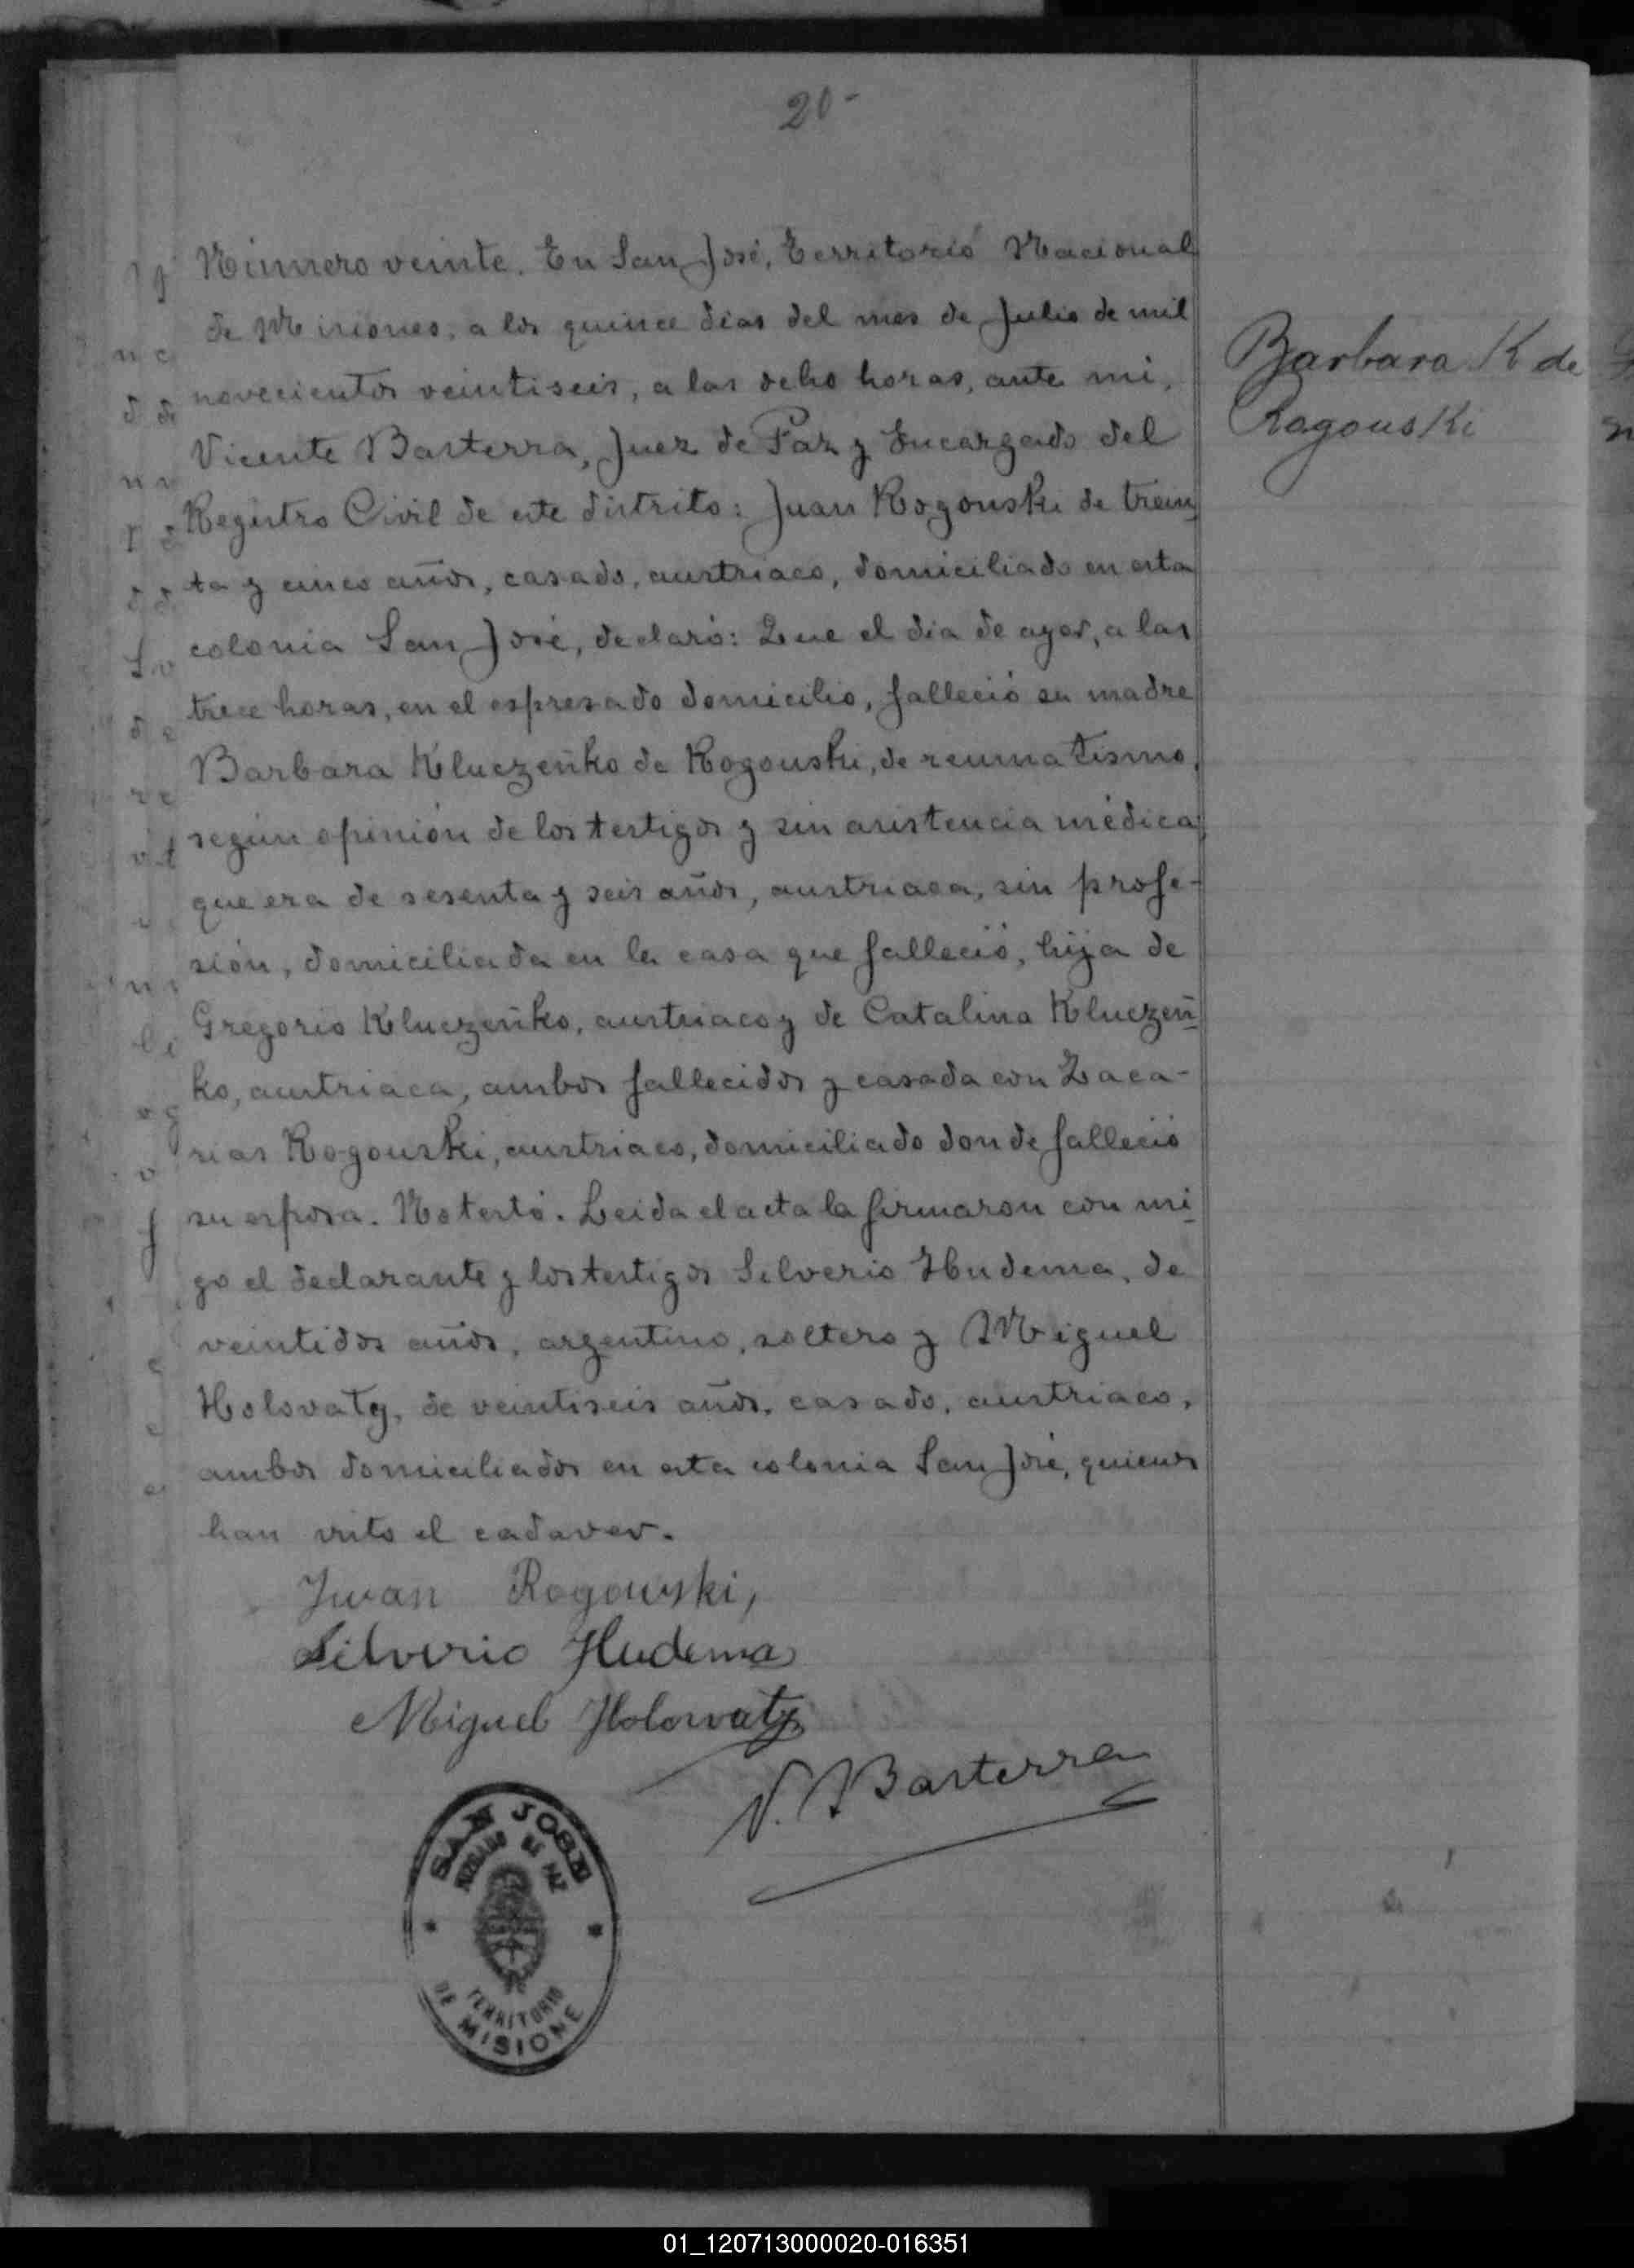 20-
Número veinte. En San José, Territorio Nacional
de Misiones, a los quince dias del mes de Julio de mil
novecientos veintiseis, a las ocho horas, ante mi,
Vicente Basterra, Juez de Paz y Encargado del
Registro Civil de este distrito: Juan Rogouski de trein
ta y cinco años, casado, austriaco, domiciliado en esta
colonia San José, declaró: Que el dia de ayer, a las
trece horas, en el espresado domicilio, falleció su madre
Barbara Kluczeñko de Rogouski, de reumatismo,
según opinión de los testigos y sin asistencia médica
que era de sesenta y seis años, austriaca, sin profe-
sión, domiciliada en la casa que falleció, hija de
Gregorio Kluczeñko, austriaco y de Catalina Kluczeñ
ko, austriaca, ambos fallecidos y casada con Zaca-
rias Rogouski, austriaco, domiciliado donde falleció
su esposa. No testó. Leida el acta la firmaron con mi
go el declarante y los testigos Silverio Hudema, de
veintidos años, argentino, soltero y Miguel
Holovaty, de veintiseis años, casado, austriaco,
ambos domiciliados en esta colonia San José, quienes
han visto el cadaver.
Barbara K de
Rogouski
Iwan Rogowski,
Silverio Hudema
Miguel Holowaty
V. Basterra
SAN JOSE
JUZGADO DE PAZ
TERRITORIO
DE MISIONE
01_120713000020-016351